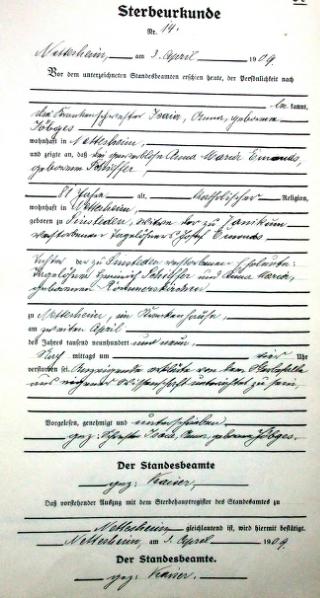 Sterbeurkunde
Nr. 14.
Nettersheim, am 3. April 1909.
Vor dem unterzeichneten Standesbeamten erschien heute, der Persönlichkeit nach
be kannt,
die Krankenschwester Isaria, Anna, geborene
Jöbges
wohnhaft in Nettersheim,
und zeigte an, daß die gewerblose Anna Maria Emonds,
geborene Schiffer,
81 Jahre alt, katholischer Religion,
wohnhaft in Nettersheim,
geboren zu Sinsteden, Witwe des zu
verstorbenen Tagelöhners Josef Emonds
Tochter der zu Sinsteden verstorbenen Eheleute
Tagelöhner Heinrich Schiffer und Anna Maria,
geborenen
zu Nettersheim, im Krankenhause,
am zweiten April
des Jahres tausend neunhundert und neun,
Nach mittags um vier Uhr
verstorben sei. Anzeigende erklärte von dem Sterbefalle
aus eigener Wissenschaft unterrichtet zu sein.
Vorgelesen, genehmigt und unterschrieben
gez: Schwester Isaria, Anna, geborene Jöbges.
Der Standesbeamte
gez: Kaiser.
Daß vorstehender Auszug mit dem Sterbehauptregister des Standesamtes zu
Nettersheim gleichlautend ist, wird hiermit bestätigt.
Nettersheim, am 3. April 1909.
Der Standesbeamte.
gez: Kaiser.